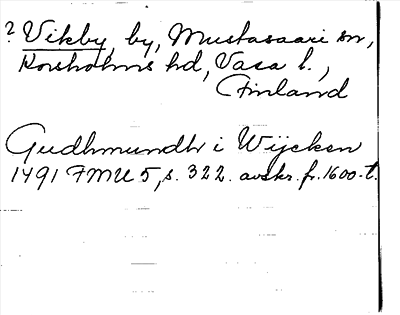 ? Vikby, by, Mustasaari sn,
Korsholms hd, Vasa l.,
Finland
Gudhmundh i Wijcken
1491 FMU 5, s. 322. avskr. fr. 1600-t.